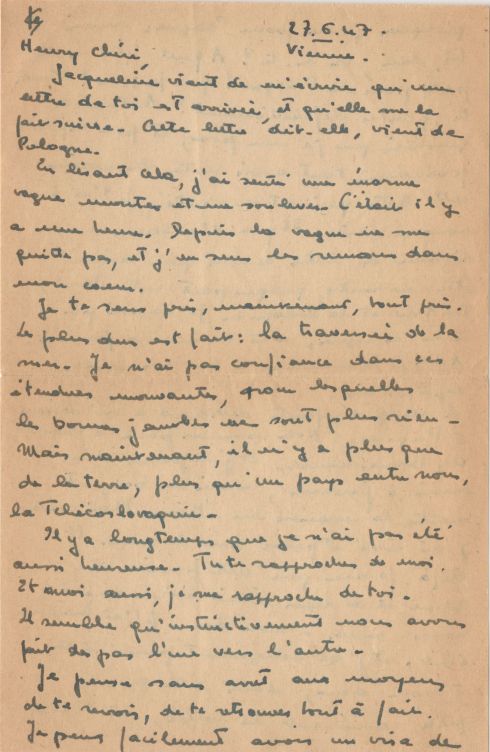 27.6.47.
Vienne.
Henry chéri,
Jacqueline vient de m'écrire qu'une
lettre de toi est arrivée, et qu'elle me la
fait suivre. Cette lettre, dit-elle, vient de
Pologne.
En lisant cela, j'ai senti une énorme
vague monter et me soulever. C'était il y
a une heure. Depuis la vague ne me
quitte pas, et j'en sens les remous dans
mon coeur.
Je te sens près, maintenant, tout près.
Le plus dur est fait: la traversée de la
mer. Je n'ai pas confiance dans ces
étendues mouvantes, pour lesquelles
les bonnes jambes ne sont plus rien -
Mais maintenant, il n'y a plus que
de la terre, plus qu'un pays entre nous,
la Tchécoslovaquie -
Il y a longtemps que je n'ai pas été
aussi heureuse. Tu te rapproches de moi.
Et moi aussi, je me rapproche de toi.
Il semble qu'instinctivement nous avons
fait des pas l'un vers l'autre.
Je pense sans arrêt aux moyens
de te revoir, de te retrouver tout à fait.
Je peux facilement avoir un visa de